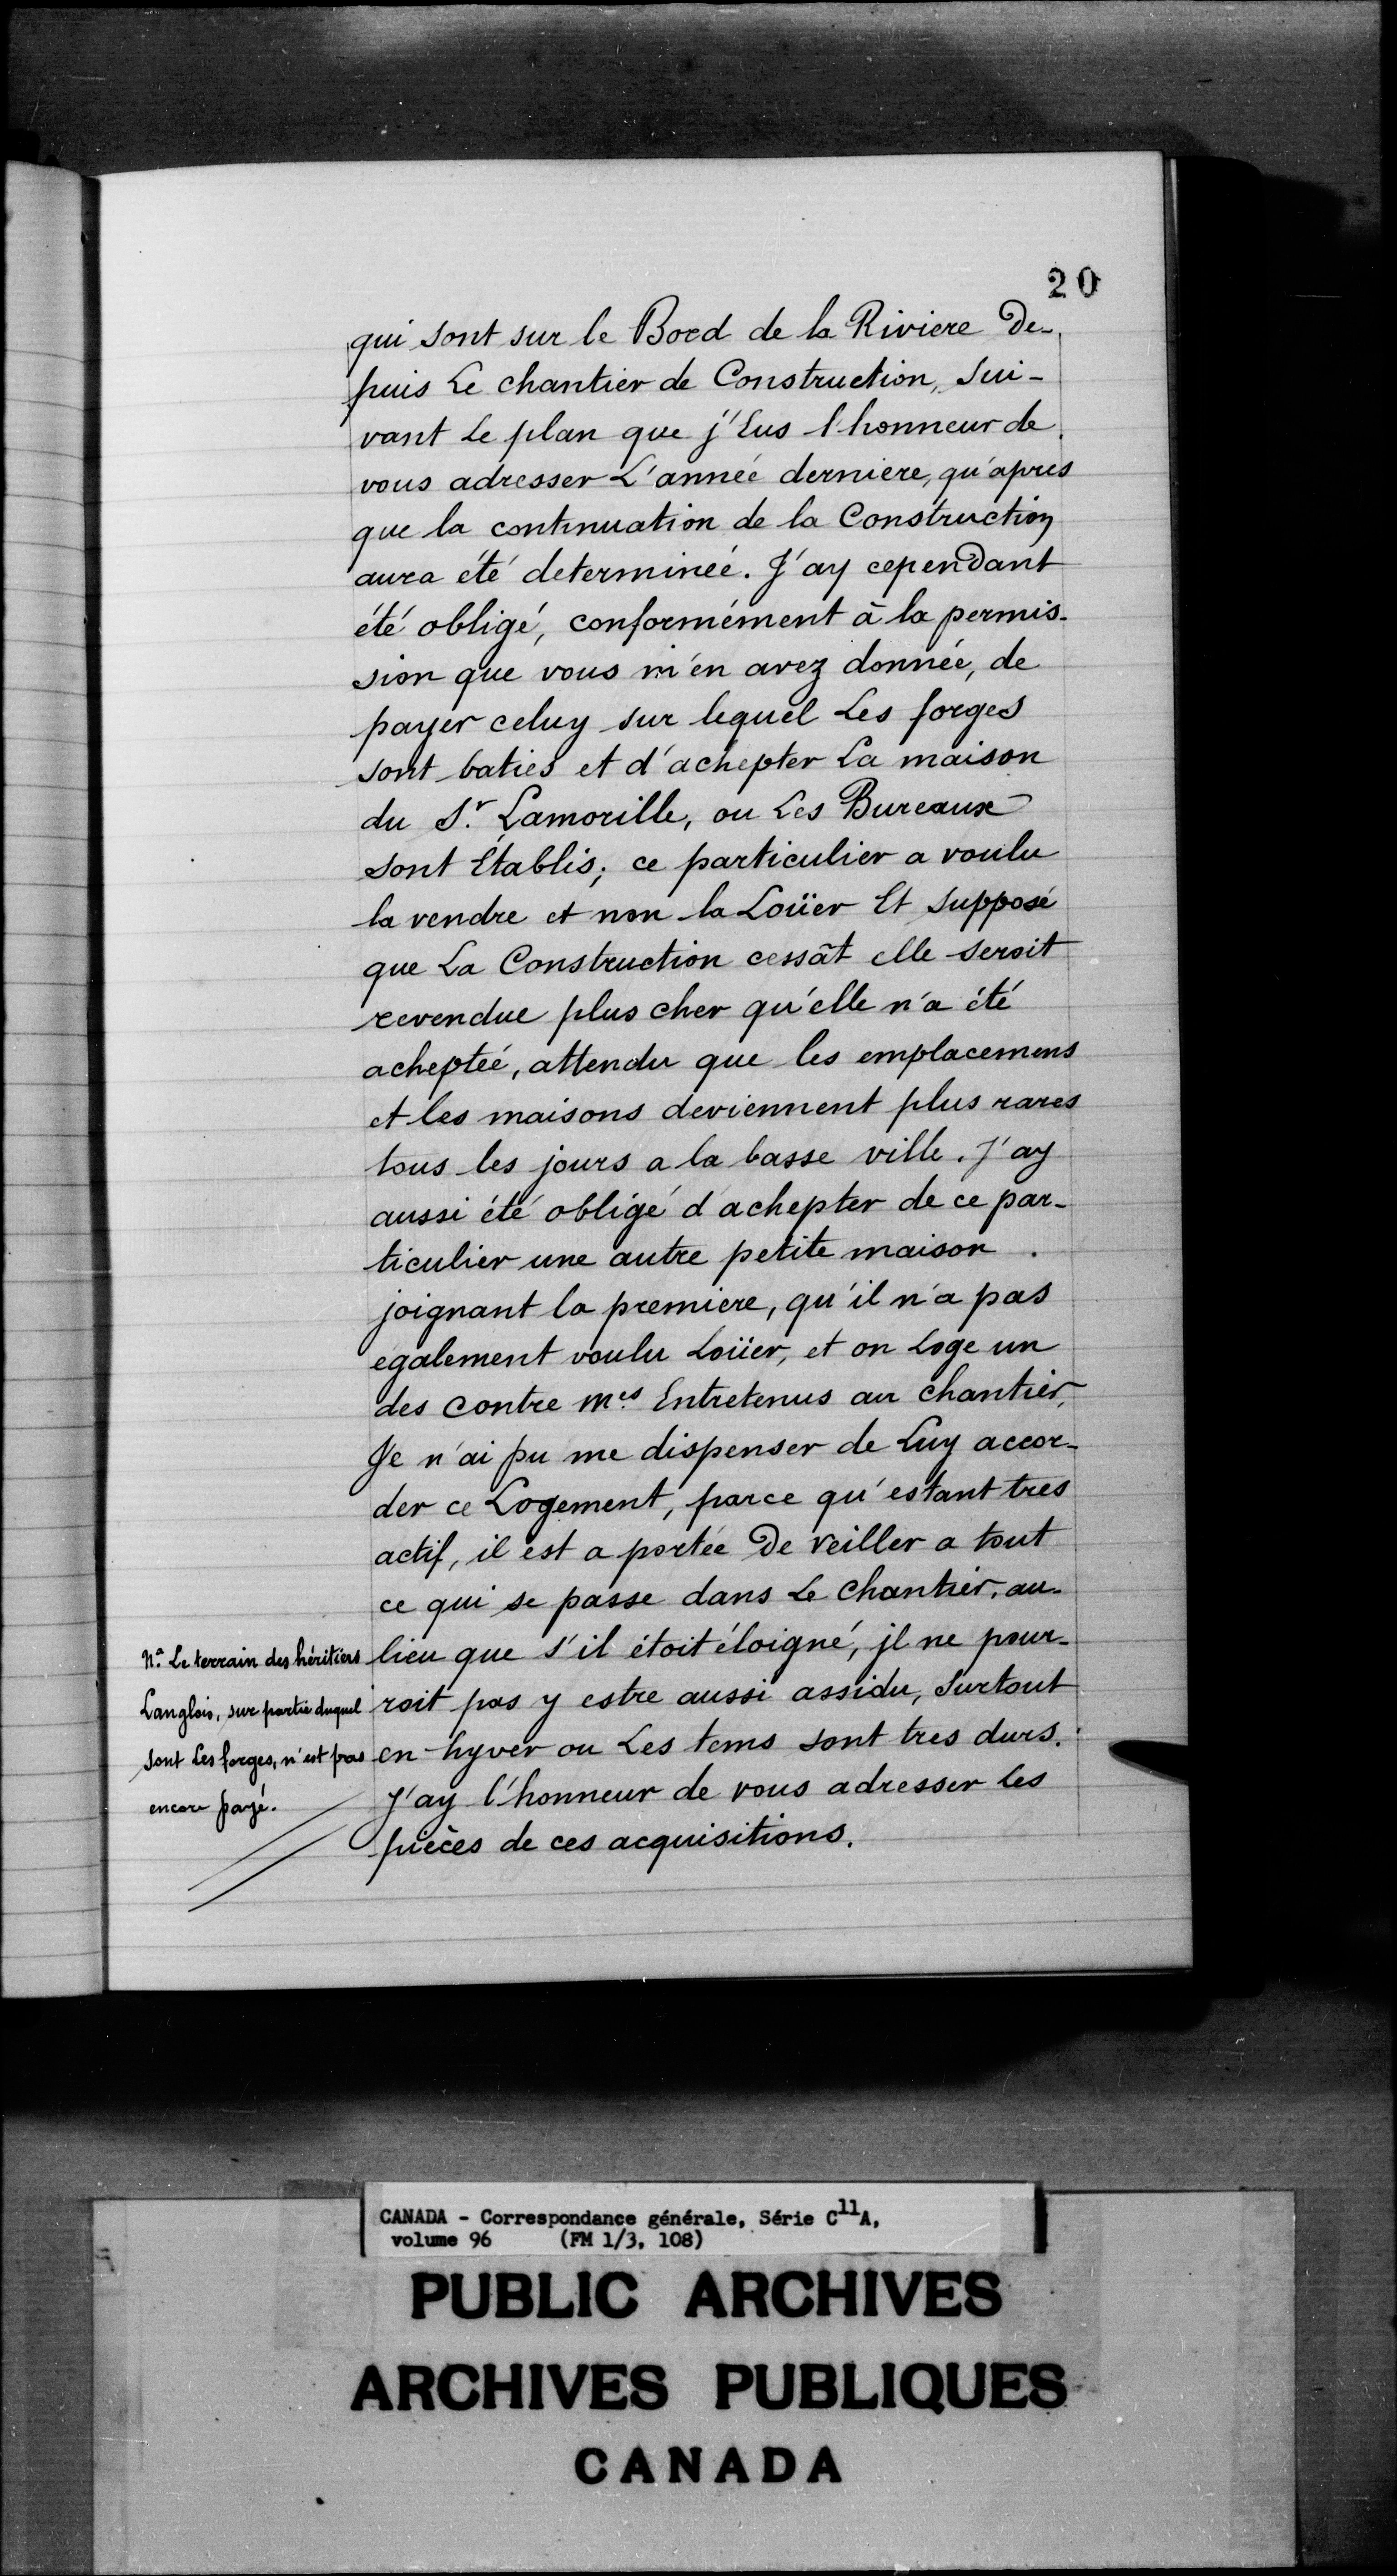 20
qui sont sur le Bord de la Riviere De-
puis Le chantier de Construction, Sui-
vant Le plan que j'Eus l'honneur de
vous adresser L'année derniere, qu'apres
que la continuation de la Construction
aura été determinéé. J'ay cependant
été obligé, conformément à la permis-
sion que vous m'en avez donnée, de
payer celuy sur lequel Les forges
sont baties et d'achepter La maison
du Sr. Lamorille, ou Les Bureaux
sont Etablis; ce particulier a voulu
la vendre et non la Loüer Et Supposé
que La Construction cessât elle seroit
revendue plus cher qu'elle n'a été
acheptéé, attendu que les emplacemens
et les maisons deviennent plus rares
tous les jours a la basse ville. J'ay
aussi été obligé d'achepter de ce par-
ticulier une autre petite maison
joignant la premiere, qu'il n'a pas
egalement voulu Loüer, et on Loge un
des contre mes. Entretenus au chantier,
Je n'ai pu me dispenser de Luy accor-
der ce Logement, parce qu'estant tres
actif, il est a portée De veiller a tout
ce qui se passe dans Le Chantier, au-
lieu que s'il étoit éloigné, jl ne pour-
roit pas y estre aussi assidu, Surtout
en hyver ou Les tems sont tres durs.
J'ay l'honneur de vous adresser les
pièces de ces acquisitions.
Na. Le terrain des héritiers
Langlois, sur partie duquel
sont Les forges, n'est pas
encore payé.
CANADA - Correspondance générale, Série C11A,
volume 96 (FM 1/3, 108)
PUBLIC ARCHIVES
ARCHIVES PUBLIQUES
CANADA